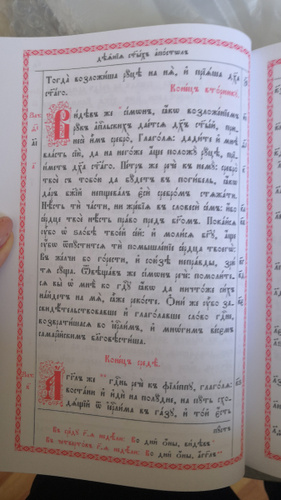 дѣѧ̑нїѧ ст҃ы́хъ а҆пⷭ҇тѡлъ
Тогда̀ возложи́ша рꙋ́цѣ на нѧ̀, и҆ прїѧ́ша дх҃а
ст҃а́го.
Коне́цъ вто́рникꙋ.
Ви́дѣвъ же сі́мѡнъ, ꙗ҆́кѡ возложе́нїемъ
рꙋ́къ а҆пⷭ҇льскихъ дае́тсѧ дх҃ъ ст҃ы́й, при-
несѐ и҆̀мъ сребро̀, глаго́лѧ: дади́те и҆ мнѣ̀
вла́сть сїю̀, да на него́же а҆́ще положꙋ̀ рꙋ́цѣ, прї-
и́метъ дх҃а ст҃а́го. Пе́тръ же речѐ къ немꙋ̀: сребро̀
твоѐ съ тобо́ю да бꙋ́детъ въ поги́бель, ꙗ҆́кѡ
да́ръ бж҃їй непщева́лъ є҆сѝ сребро́мъ стѧжа́ти.
Нѣ́сть тѝ ча́сти, ни жре́бїѧ въ словесѝ се́мъ: и҆́бо
се́рдце твоѐ нѣ́сть пра́во пред̾ бг҃омъ. Пока́йсѧ
ᲂу҆̀бо ѡ҆ ѕло́бѣ твое́й се́й: и҆ моли́сѧ бг҃ꙋ, а҆́ще
ᲂу҆̀бо ѿпꙋ́ститсѧ тѝ помышле́нїе се́рдца твоегѡ̀:
Въ же́лчи бо го́рести, и҆ сою́зѣ непра́вды, зрю́
тѧ сꙋ́ща. Ѿвѣща́въ же сі́мѡнъ речѐ: помоли́те-
сѧ вы̀ ѡ҆ мнѣ̀ ко гдⷭ҇ꙋ̀ ꙗ҆́кѡ да ничто́же си́хъ
на́йдетъ на мѧ̀, ꙗ҆̀же реко́сте. Ѻ҆ни́ же ᲂу҆̀бо за-
свидѣ́тельствовавше и҆ глаго́лавше сло́во гдⷭ҇не,
возврати́шасѧ во і҆ерⷭ҇ли́мъ, и҆ мнѡ́гимъ ве́семъ
самарі́йскимъ благовѣсти́ша.
Коне́цъ средѣ̀.
А҆́гг҃лъ же гдⷭ҇нь речѐ къ фїлі́ппꙋ, глаго́лѧ:
воста́ни и҆ и҆дѝ на полꙋ́дне, на пꙋ́ть сход-
ѧ́щїй ѿ і҆ерⷭ҇ли́ма въ га́зꙋ, и҆ то́й є҆́сть
пꙋ́стъ